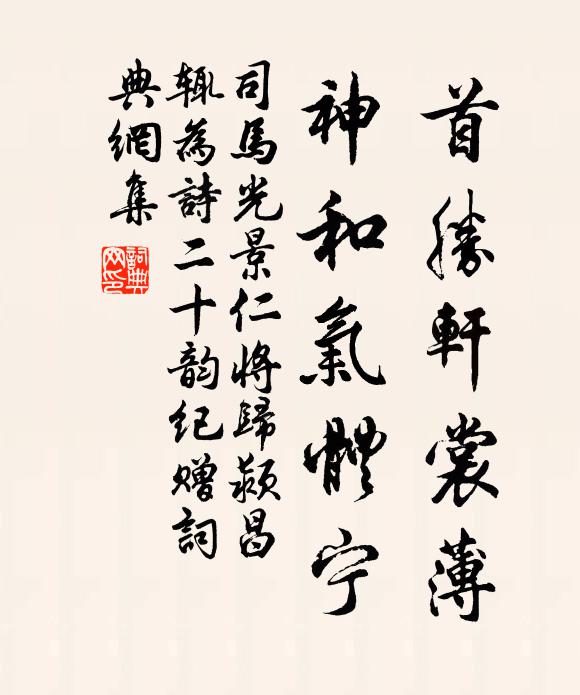 首勝軒裳薄
神和氣體宁
司馬光景仁將歸颍昌
辄為詩二十韵纪赠詞
典網集
詞典網印